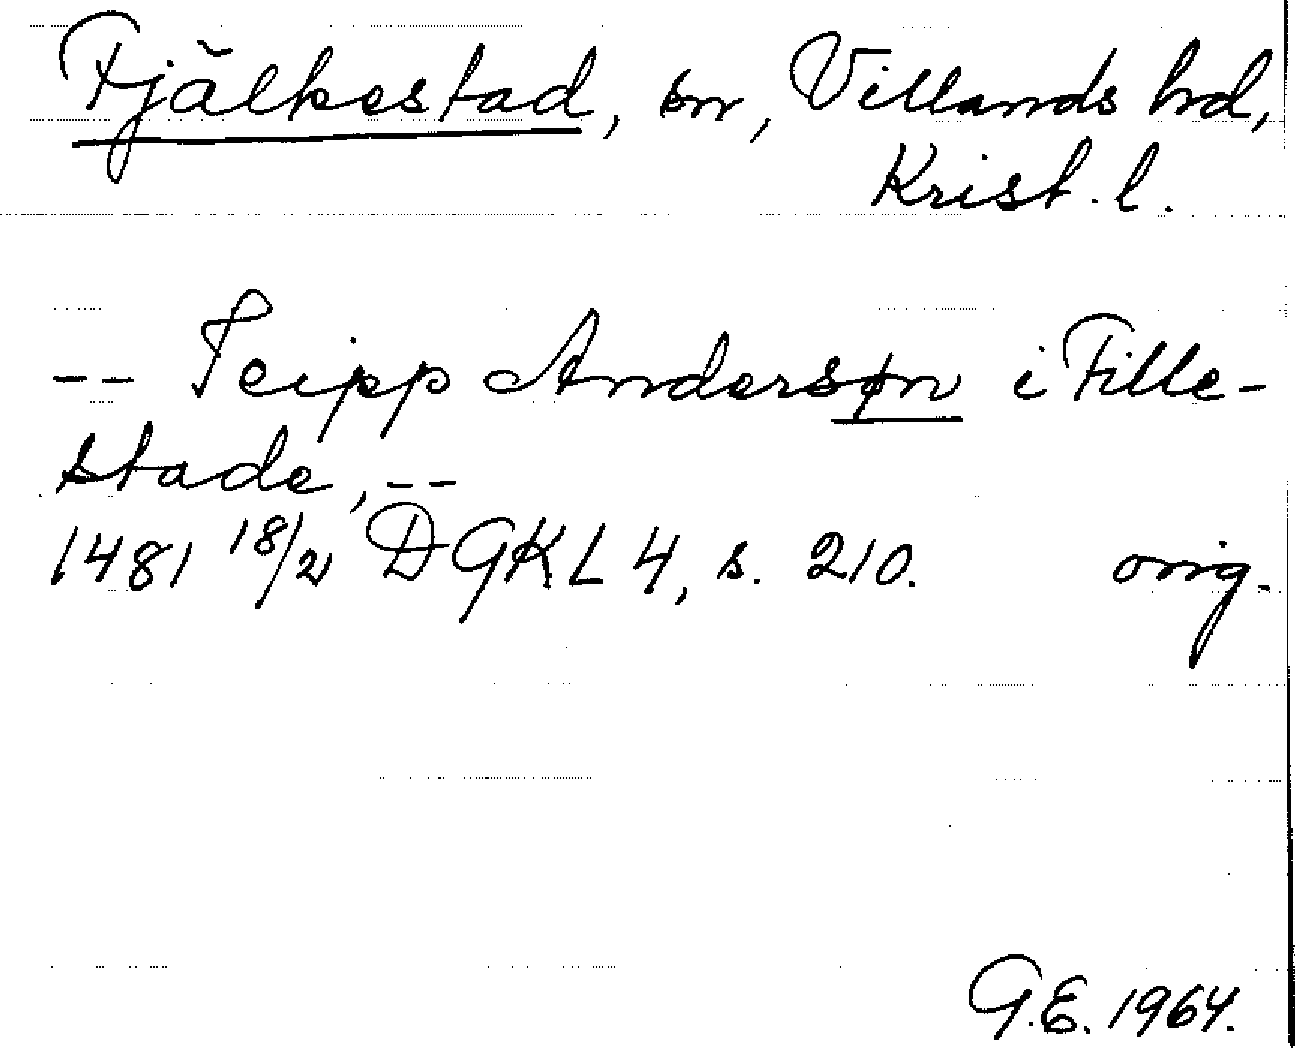 Fjälkestad, sn, Villands hd,
Krist. l.
-- Jeipp Andersøn i Fille-
stade, --
1481 18/2 DGKL 4, s. 210. orig.
G.E. 1964.